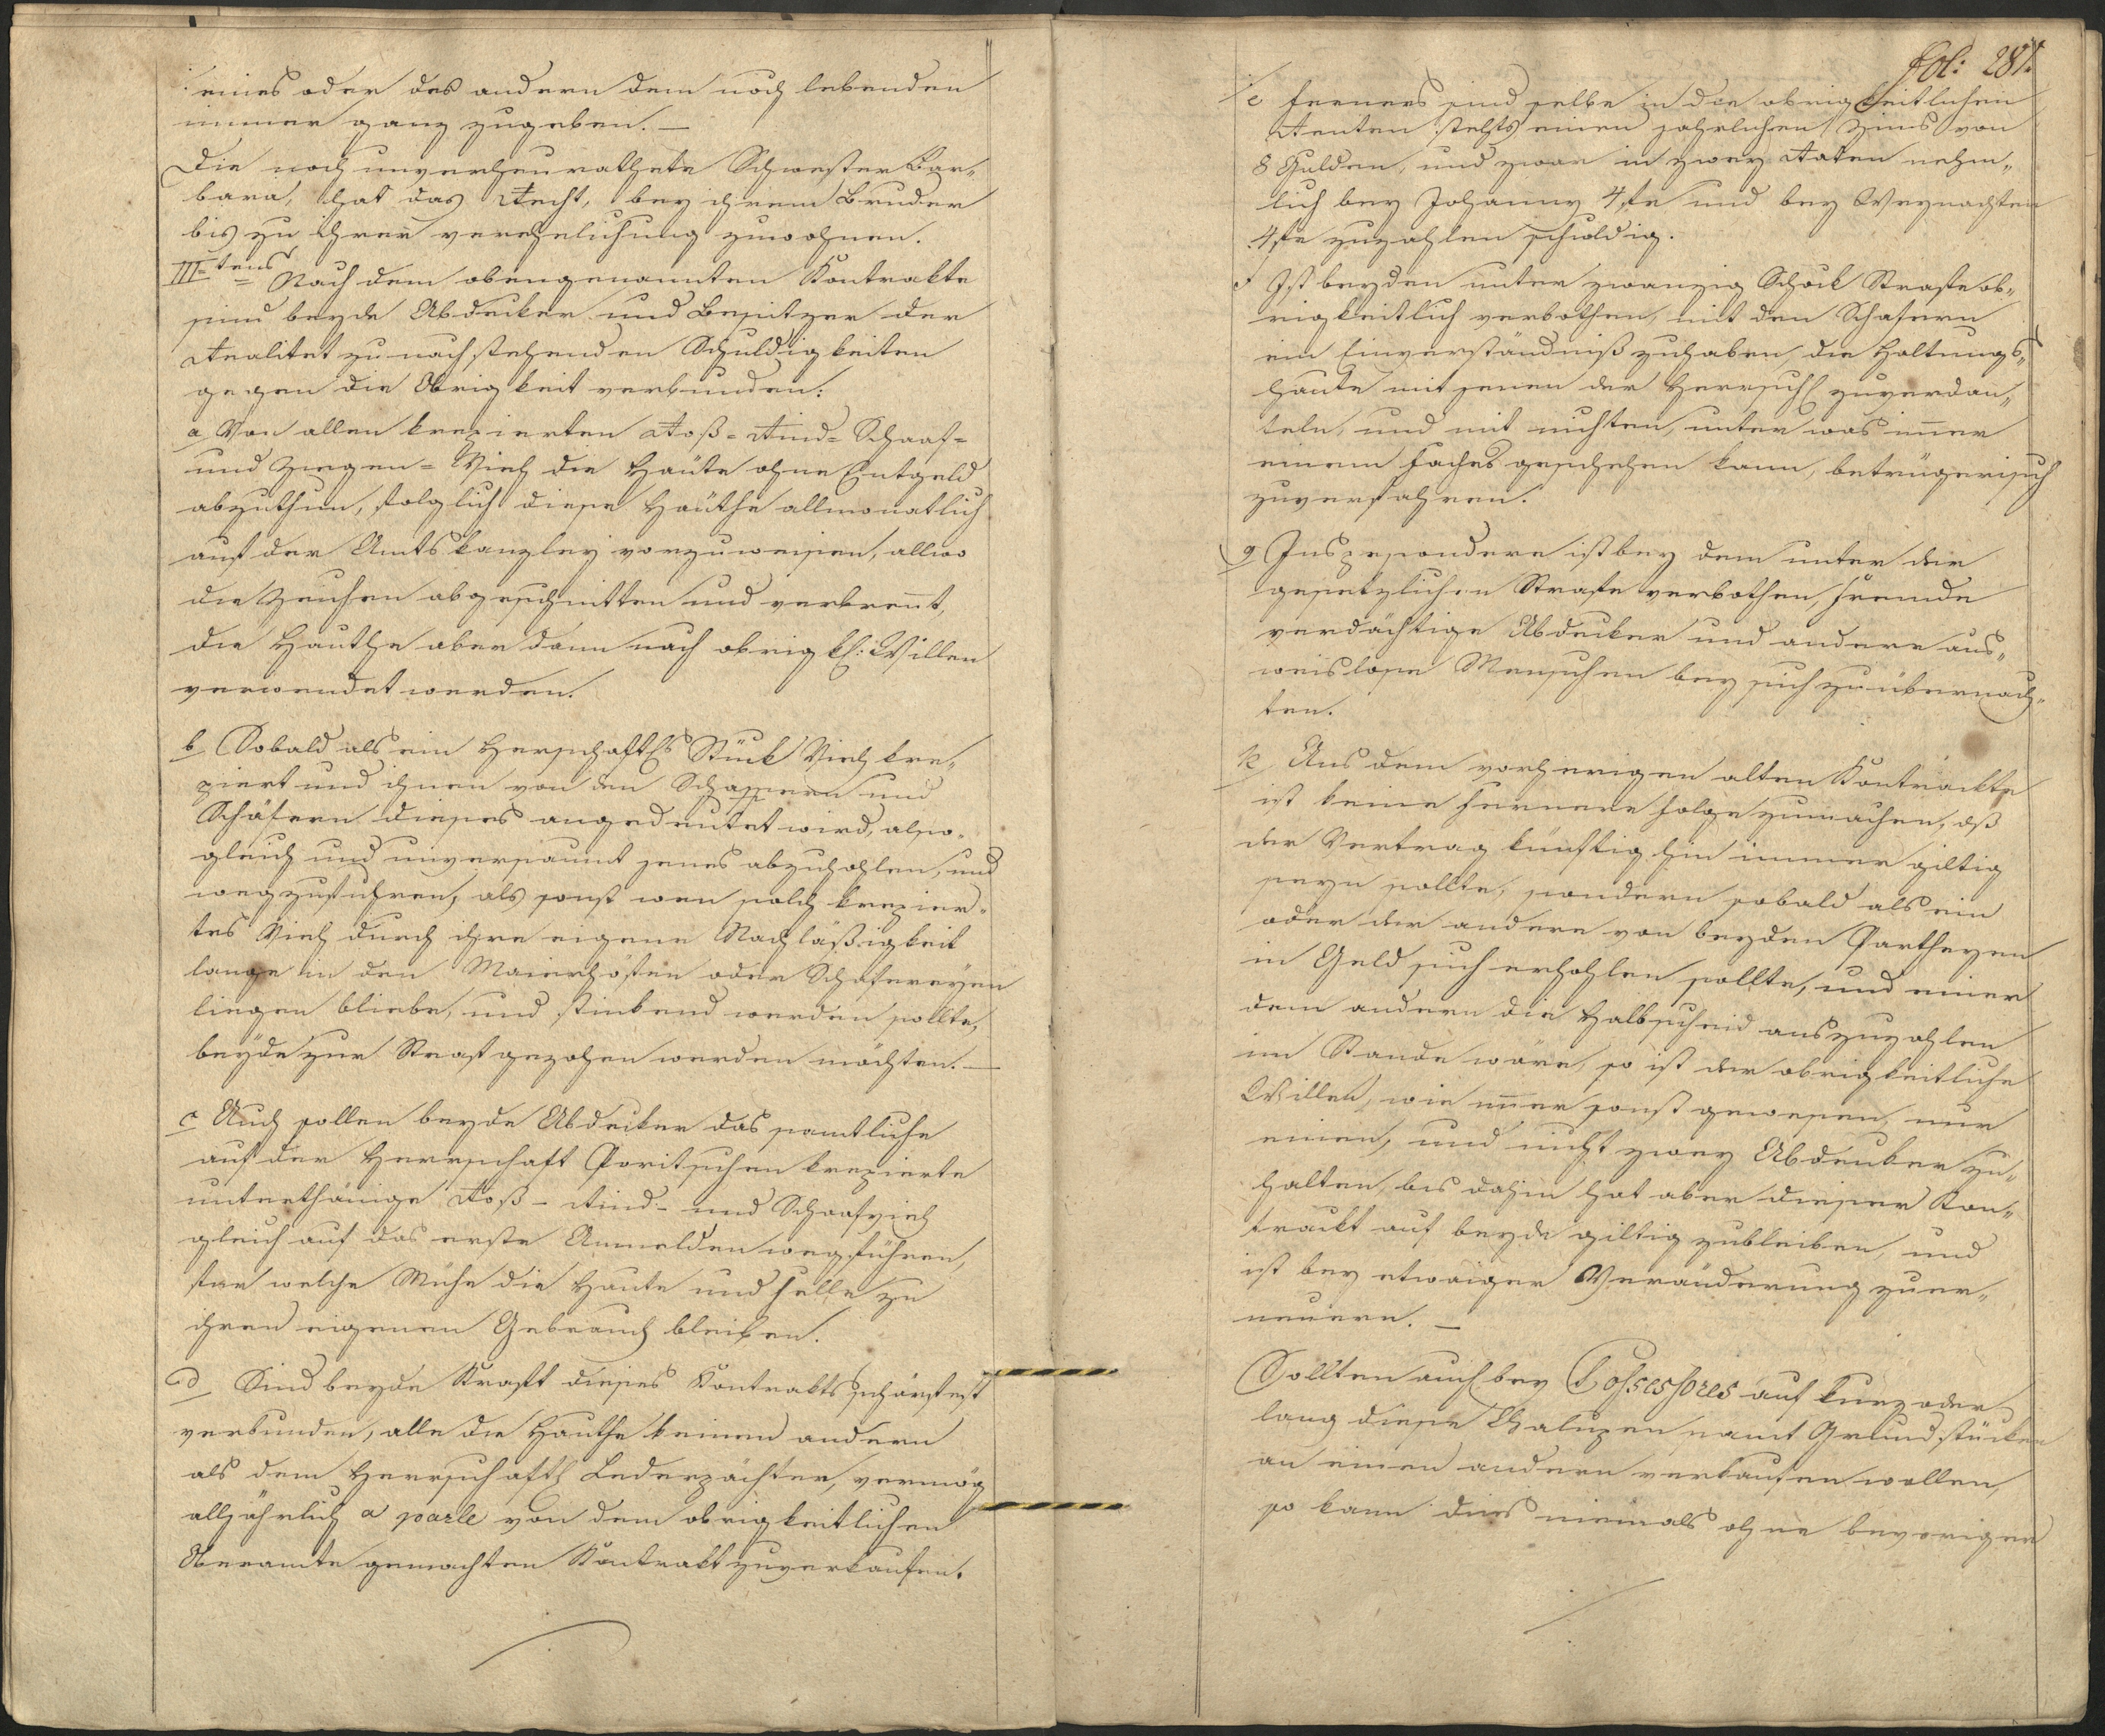 eines oder des andern dem noch lebenden
immer ganz zugeben. —
Die noch unverheurathete Schwester Bar„
bara, hat das Recht, bey ihrem Bruder
bis zu ihrer verehelichung zuwohnen.
III tens = Nach dem obengenannten Kontrakte
sind beyde Abdecker und Besitzer der
Realitet zu nachstehenden Schuldigkeiten
gegen die Obrigkeit verbunden:
a Von allen krepierten Roß= Rind= Schaaf=
und Ziegen= Vieh die Häute ohne Entgeld
abzuthun, folglich diese Häuthe allmonatlich
auf der Amtskanzley vorzuweisen, allwo
die Zeichen abgeschnitten und verbrent,
die Hauthe aber dann nach obrigkl: Willen
verwendet werden.
b Sobald als ein Herschaftls Stück Vieh kre„
piert und ihnen von den Schaffern und
Schäfern dieses angedeutet wird, also„
gleich und unversaumt jenes abzuhohlen, und
wegzufuhren, als sonst wen solch krepier„
tes Vieh durch ihre eigene Nachläßigkeit
lange in den Maierhöffen oder Schäfereyen
liegen bliebe, und stinkend werden sollte,
beyde zur Straf gezohen werden möchten. —
c Auch sollen beyde Abdecker das samtliche
auf der Herrschaft Poritschen krepierte
unterthänige Roß- Rind- und Schaafvieh
gleich auf das erste Anmelden wegführen,
für welche Mühe die Haute und Felle zu
ihren eigenen Gebrauch bleiben.
d Sind beyde Kraft dieses Kontrakts schärfest
verbunden, alle die Hauthe keinen andern
als dem Herrschaftl Lederpächter, vermög
alljährlich a parte von dem obrigkeitlichen
Oberamte gemachten Kontrakt zuverkaufen.
Fol: 281.
e Ferners sind selbe in die obrigkeitlichen
Renten stehts einen jahrlichen Zins von
8 Gulden, und zwar in zwey Raten nehm„
lich bey Johanny 4 fr und bey Weynachten
4 fr zuzahlen schuldig.
f Ist beyden unter zwanzig Schock Strafe ob„
rigkeitlich verbothen, mit den Schafern
ein Einverständniß zuhaben, die Haltungs„
haute mit jenen der Herrschl zuverdan„
teln, und mit nichten, unter was imer
einem Faches geschehen kann, betrügerisch
zuverfahren.
g Inspesondere ist bey dem unter der
gesetzlichen Strafe verbothen, fremde
verdächtige Abdecker und andere aus„
weislose Menschen bey sich zu übernach„
ten.
h Aus dem vorherigen alten Kontrackte
ist keine fernere Folge zumachen, dß
der Vertrag künftig hin immer giltig
seyn sollte, sondern sobald als ein
oder der andere von beyden Partheyen
in Geld sich erhohlen sollte, und einer
dem andern die Halbscheid auszuzahlen
im Stande wäre, so ist der obrigkeitliche
Willen, wie imer sonst gewesen, nur
einen, und nicht zwey Abdecker zu„
halten, bis dahin hat aber dieser Kon„
trackt auf beyde giltig zubleiben, und
ist bey etwaiger Veränderung zuer„
neuern. —
Sollten auch bey Possessores auf kurz oder
lang diese Chalupen samt Grundstücken
an einen andern verkaufen wollen,
so kann dies niemals ohne bevoriger